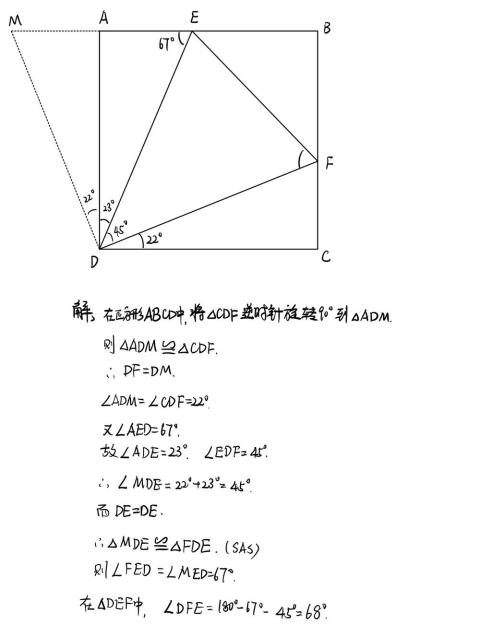 M A E B
67°
F
22°
23°
45°
22°
D C
解: 在正方形ABCD中, 将△CDF逆时针旋转90°到△ADM.
则△ADM≌△CDF.
∴ DF=DM.
∠ADM=∠CDF=22°.
又∠AED=67°.
故∠ADE=23°. ∠EDF=45°.
∴ ∠MDE=22°+23°=45°.
而 DE=DE.
∴△MDE≌△FDE. (SAS)
则∠FED=∠MED=67°.
在△DEF中, ∠DFE=180°-67°-45°=68°.